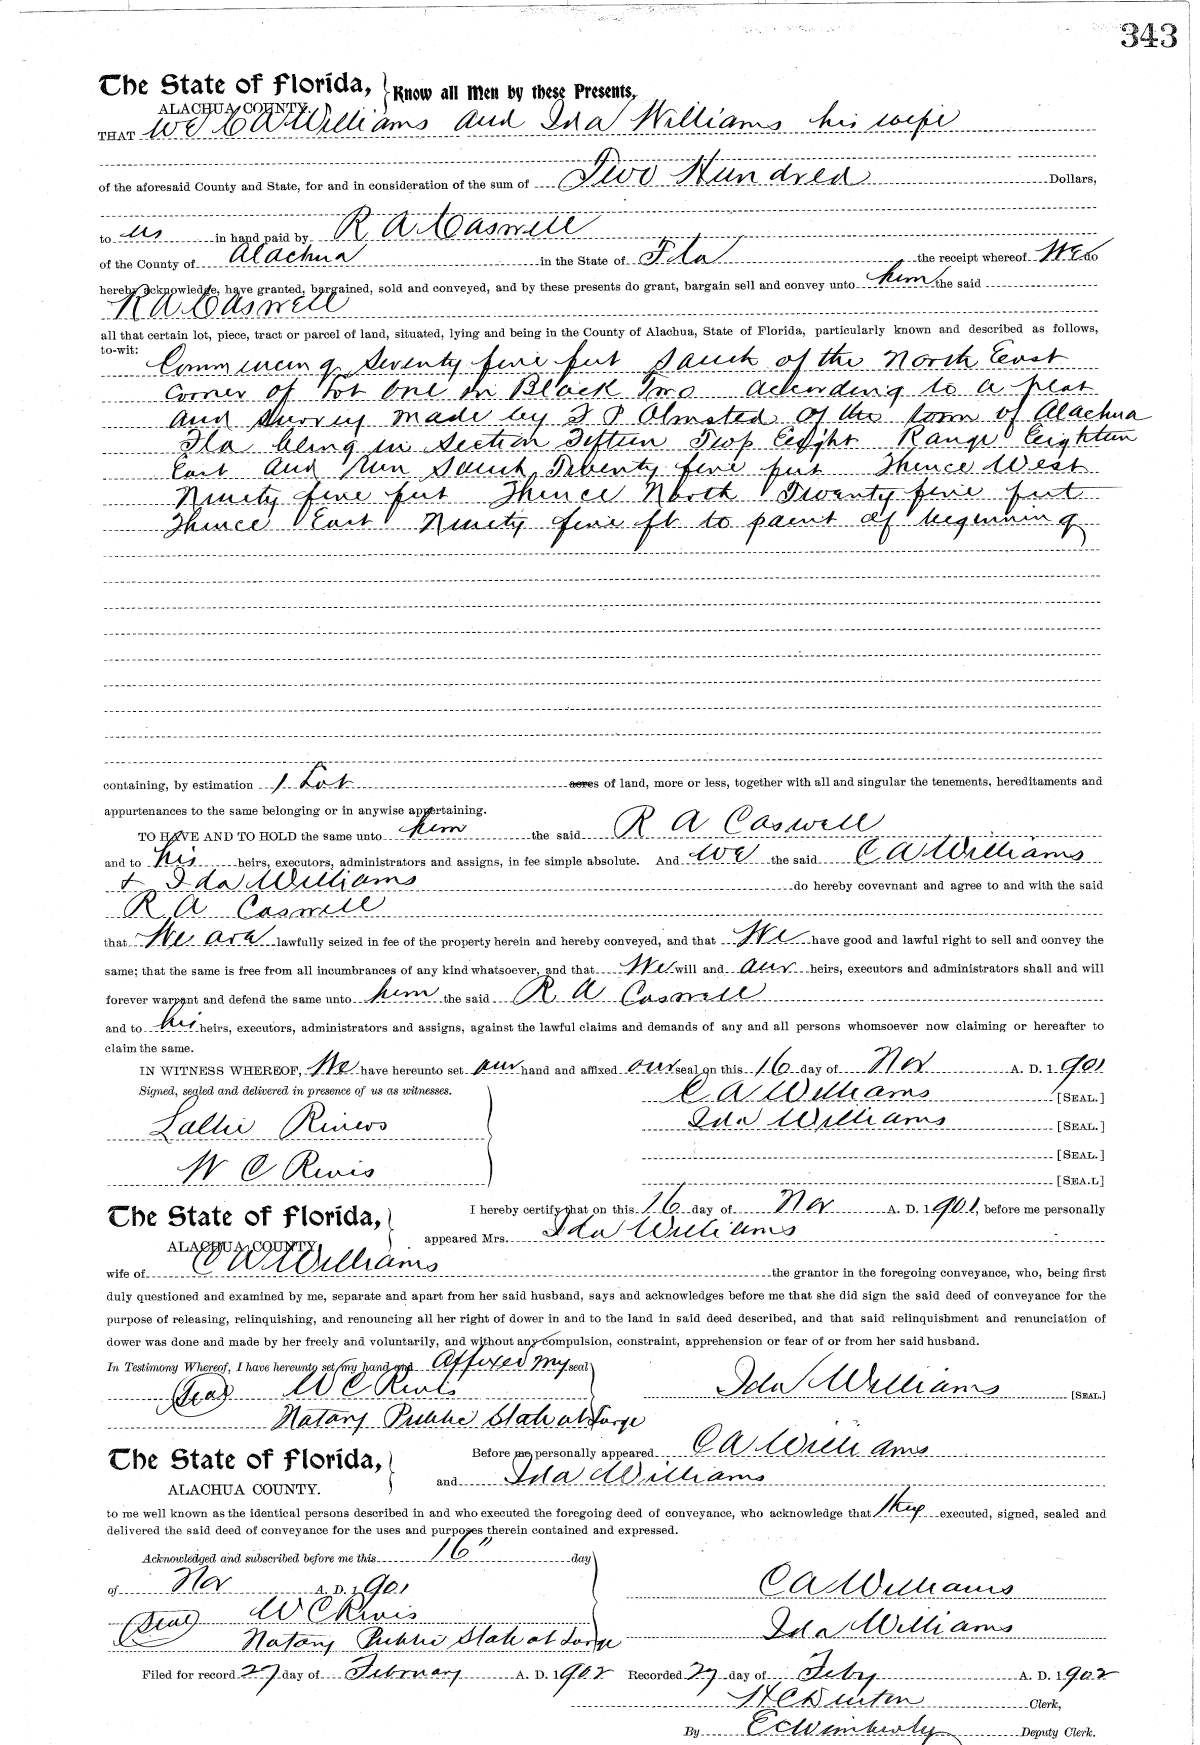 343
The State of Florida, } Know all Men by these Presents,
ALACHUA COUNTY.
THAT We C A Williams and Ida Williams his wife
of the aforesaid County and State, for and in consideration of the sum of Two Hundred Dollars,
to us in hand paid by R A Caswell
of the County of Alachua in the State of Fla the receipt whereof We do
hereby acknowledge, have granted, bargained, sold and conveyed, and by these presents do grant, bargain sell and convey unto him the said
R A Caswell
all that certain lot, piece, tract or parcel of land, situated, lying and being in the County of Alachua, State of Florida, particularly known and described as follows,
to-wit:
Commencing Seventy five feet South of the North East
Corner of Lot One in Block Two according to a plat
and survey made by F P Olmsted of the town of Alachua
Fla being in Section Fifteen Twp Eight Range Eighteen
East and run South Twenty five feet Thence West
Ninety five feet Thence North Twenty five feet
Thence East Ninety five ft to point of beginning
containing, by estimation 1 Lot acres of land, more or less, together with all and singular the tenements, hereditaments and
appurtenances to the same belonging or in anywise appertaining.
TO HAVE AND TO HOLD the same unto him the said R A Caswell
and to his heirs, executors, administrators and assigns, in fee simple absolute. And We the said C A Williams
+ Ida Williams do hereby covevnant and agree to and with the said
R A Caswell
that We are lawfully seized in fee of the property herein and hereby conveyed, and that We have good and lawful right to sell and convey the
same; that the same is free from all incumbrances of any kind whatsoever, and that We will and our heirs, executors and administrators shall and will
forever warrant and defend the same unto him the said R A Caswell
and to his heirs, executors, administrators and assigns, against the lawful claims and demands of any and all persons whomsoever now claiming or hereafter to
claim the same.
IN WITNESS WHEREOF, We have hereunto set our hand and affixed our seal on this 16 day of Nov A. D. 1901
Signed, sealed and delivered in presence of us as witnesses. C A Williams [SEAL.]
Lallie Ida Williams [SEAL.]
[SEAL.]
W C Rivis [SEA.L]
The State of Florida, } I hereby certify that on this 16 day of Nov A. D. 1901, before me personally
ALACHUA COUNTY. appeared Mrs. Ida Williams
wife of C A Williams the grantor in the foregoing conveyance, who, being first
duly questioned and examined by me, separate and apart from her said husband, says and acknowledges before me that she did sign the said deed of conveyance for the
purpose of releasing, relinquishing, and renouncing all her right of dower in and to the land in said deed described, and that said relinquishment and renunciation of
dower was done and made by her freely and voluntarily, and without any compulsion, constraint, apprehension or fear of or from her said husband.
In Testimony Whereof, I have hereunto set my hand and Affixed my seal
(Seal) W C Rivis Ida Williams [SEAL.]
Notary Public State at Large
The State of Florida, } Before me personally appeared C A Williams
ALACHUA COUNTY. and Ida Williams
to me well known as the identical persons described in and who executed the foregoing deed of conveyance, who acknowledge that they executed, signed, sealed and
delivered the said deed of conveyance for the uses and purposes therein contained and expressed.
Acknowledged and subscribed before me this 16" day
of Nov A. D. 1901 C A Williams
(Seal) W C Rivis Ida Williams
Notary Public State at Large
Filed for record 27 day of February A. D. 1902 Recorded 27 day of Feby A. D. 1902
H C Denton Clerk,
By E C Wimberly Deputy Clerk.